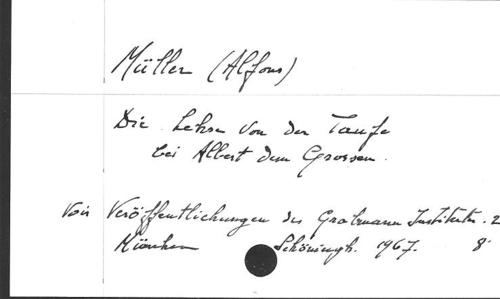 Müller (Alfons)
Die Lehre von der Taufe
bei Albert dem Grossen.
Voir Veröffentlichungen des Grabmann Instituts. 2
München Schöningh. 1967. 8°